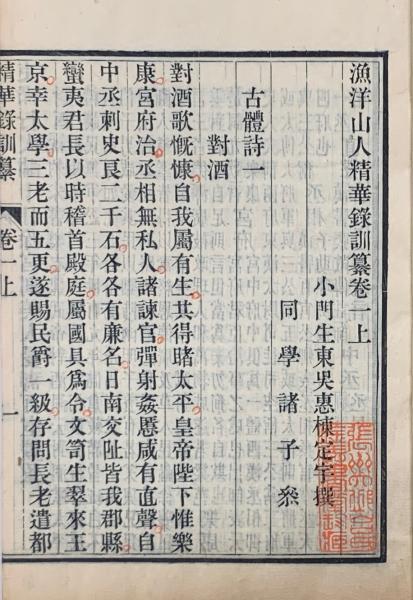 漁洋山人精華錄訓纂卷一上
小門生東吳惠棟定宇撰
同學諸子叅
古體詩一
對酒
對酒歌慨慷自我屬有生其得睹太平皇帝陛下惟樂
康宮府治丞相無私人諸諫官彈射姦慝咸有直聲自
中丞刺史良二千石各各有廉名日南交阯皆我郡縣
蠻夷君長以時稽首殿庭屬國具爲令文笥生翠來王
京幸太學三老而五更遂賜民爵一級存問長老遣都
精華錄訓纂
卷一上
一